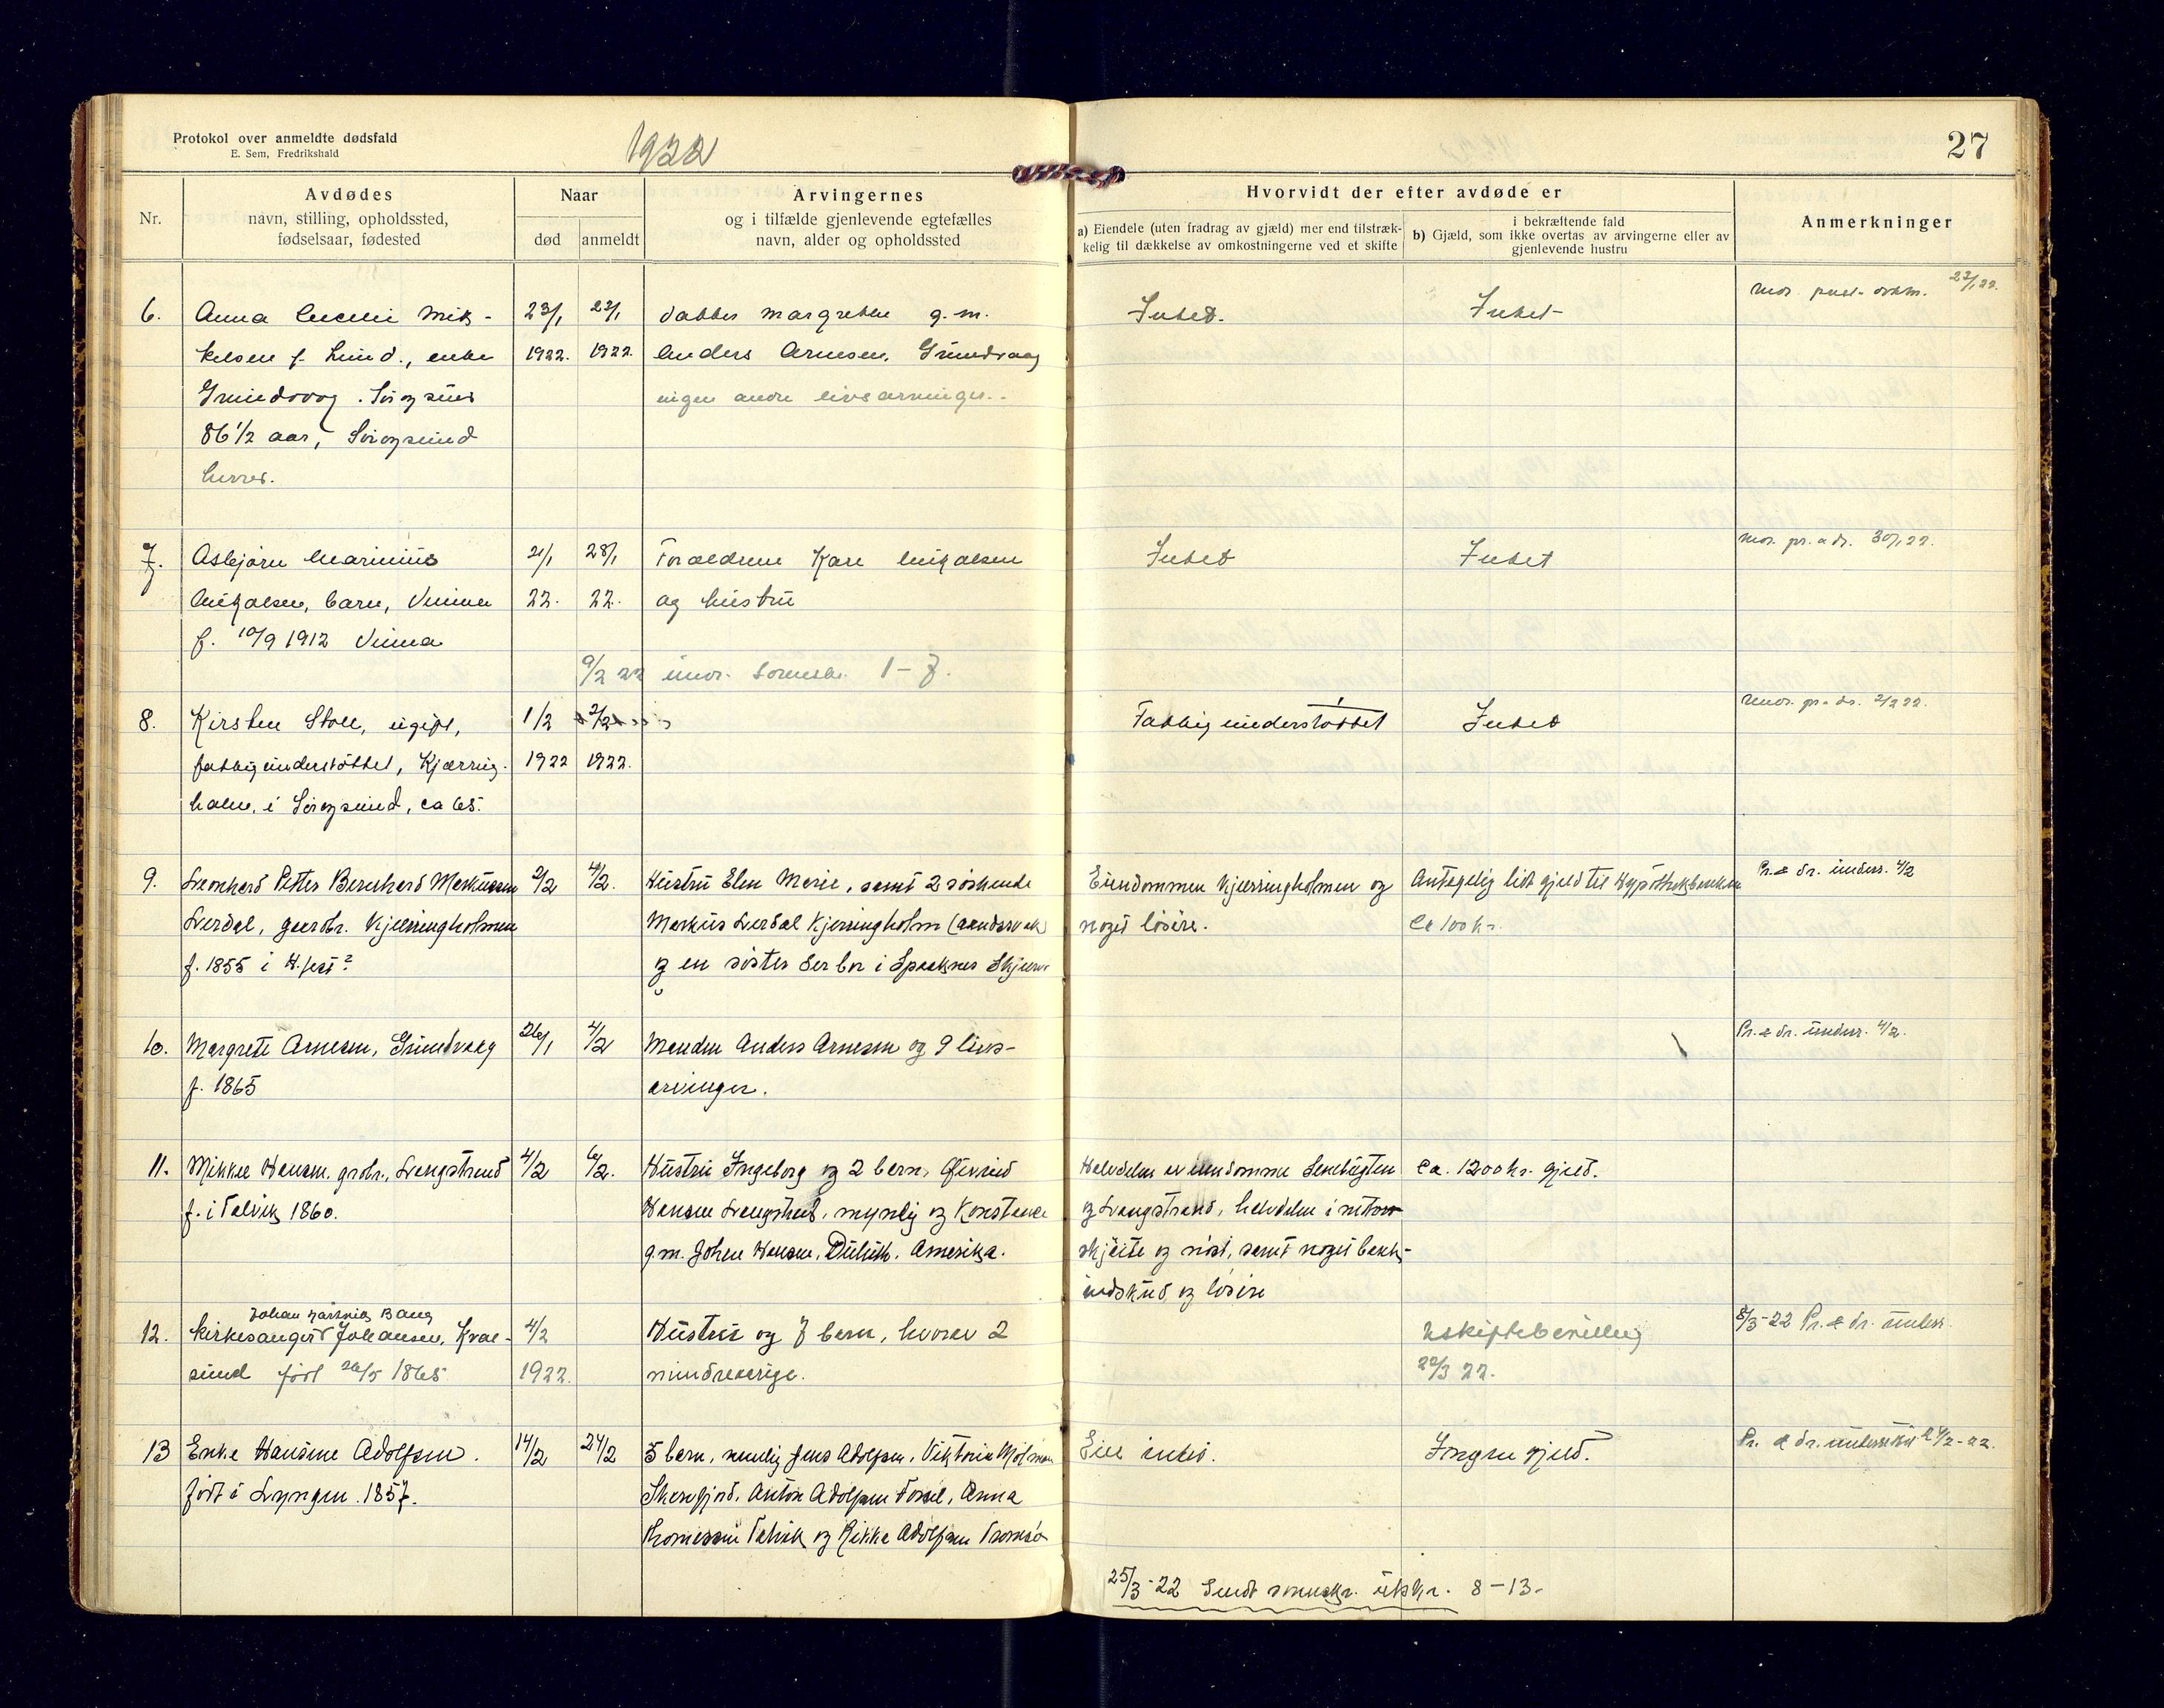 Protokol over anmeldte dødsfald
E. Sem, Fredrikshald
1922
27
Nr.
Avdødes
navn, stilling, opholdssted,
fødselsaar, fødested
Naar
død
anmeldt
Arvingernes
og i tilfælde gjenlevende egtefælles
navn, alder og opholdssted
Hvorvidt der efter avdøde er
a) Eiendele (uten fradrag av gjæld) mer end tilstræk-
kelig til dækkelse av omkostningerne ved et skifte
i bekræftende fald
b) Gjæld, som ikke overtas av arvingerne eller av
gjenlevende hustru
Anmerkninger
6.
Anna Mik-
kelsen f. Lund., enke
Grundvog. Sörøysund
86 1/2 aar, Sörøysund
herred.
23/1
1922.
27/1
1922.
datter Margrethe g.m.
Anders Arnesen, Grundvaag
ingen andre livsarvinger.
Intet.
Intet
27/1 22.
7.
Asbjørn Marinius
Mikalsen, barn, Vinna
f. 10/9 1912 Vinna
21/1
22.
28/1
22.
Foraldrene Kare Mikalsen
og hustru
Intet
Intet
30/1 22.
9/2 22 1-7.
8.
Kirsten Stoll, ugift,
fattigunderstöttet, Kjærring-
holm, i Sörøysund, ca 65.
1/2
1922
2/2
1922.
Fattigunderstöttet
Intet
2/2 22.
9.
Leonhard Petter Bernhard Markussen
Lerdal, gaardbr. Kjærringholmen
f. 1855 i H.fest?
2/2
4/2.
Hustru Elen Marie, samt 2 söskende
Markus Lerdal Kjerringholm (aandssvak)
og en söster der bor i Spaaknes Skjærvö
Eiendommen Kjærringholmen og
noget lösöre.
Antagelig lidt gjeld til Hypothekbanken
Ca 100 kr.
Pr. & dr. underr. 4/2
10.
Margrete Arnesen, Grundvaag
f. 1865
26/1
4/2
Manden Anders Arnesen og 9 livs-
arvinger.
Pr. & dr. underr. 4/2.
11.
Mikkel Hansen, grdbr., Langstrand
f. i Talvik 1860.
4/2
6/2.
Hustru Ingeborg og 2 barn, Eivind
Hansen Langstrand, myndig og Konstance
g.m. Johan Hansen, Duluth, Amerika.
Halvdelen av eiendommene
og Langstrand, halvdelen i motor-
skjöite og nöst, samt noget bank-
indskud og lösöre
Ca. 1200 kr. gjeld.
12.
Johan Hartvig Bang
Kirkesanger Johansen, Kval-
sund född 26/5 1865
4/2
1922.
Hustru og 7 barn, hvorav 2
mindreaarige.
Uskiftebevilling
22/3 22.
8/3-22 Pr. & dr. underr.
13
Enke Hansine Adolfsen.
född i Lyngen. 1857.
14/2
24/2
5 barn, nemlig Jens Adolfsen, Viktoria
Anton Adolfsen Anna
Thomassen Talvik og Rikka Adolfsen Tromsö
Eier intet.
Ingen gjeld.
Pr. & dr. underrettet 24/2-22.
25/3-22 Sendt utskr. 8-13.